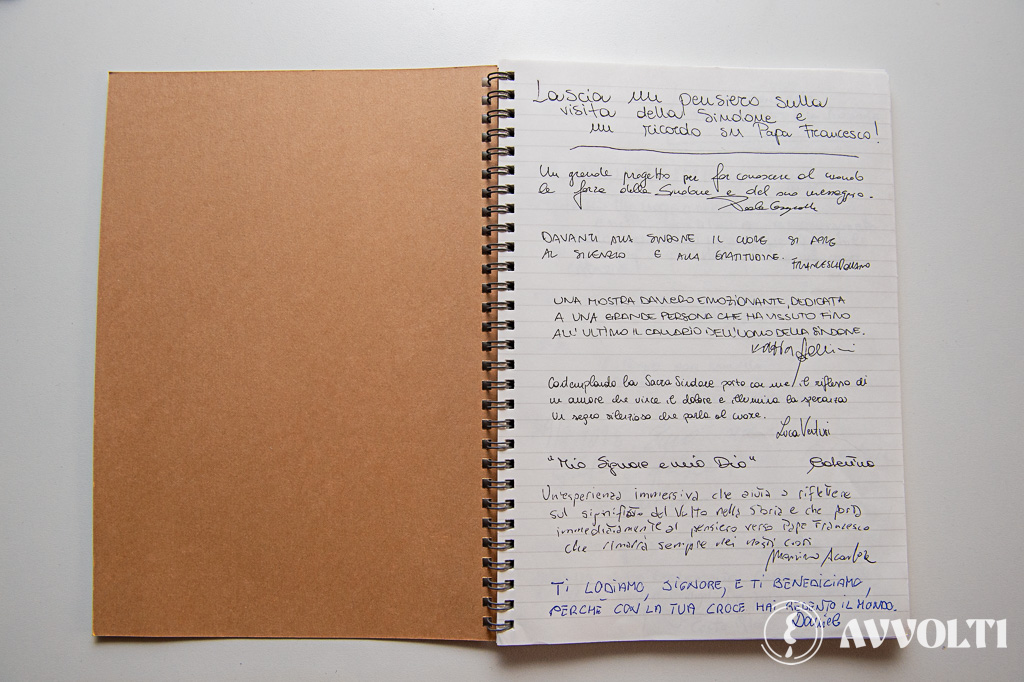 Lascia un pensiero sulla
visita della Sindone e
un ricordo su Papa Francesco!
Un grande progetto per far conoscere al mondo
la forza della Sindone e del suo messaggio.
DAVANTI ALLA SINDONE IL CUORE SI APRE
AL SILENZIO E ALLA GRATITUDINE.
UNA MOSTRA DAVVERO EMOZIONANTE, DEDICATA
A UNA GRANDE PERSONA CHE HA VISSUTO FINO
ALL'ULTIMO IL CALVARIO DELL'UOMO DELLA SINDONE.
Contemplando la Sacra Sindone porto con me il riflesso di
un amore che vince il dolore e illumina la speranza
Un segno silenzioso che parla al cuore.
Luca
"Mio Signore e mio Dio"
Un'esperienza immersiva che aiuta a riflettere
sul significato del Volto nella storia e che porta
immediatamente al pensiero verso Papa Francesco
che rimarrà sempre nei nostri cuori
TI LODIAMO, SIGNORE, E TI BENEDICIAMO,
PERCHÉ CON LA TUA CROCE HAI REDENTO IL MONDO.
AVVOLTI